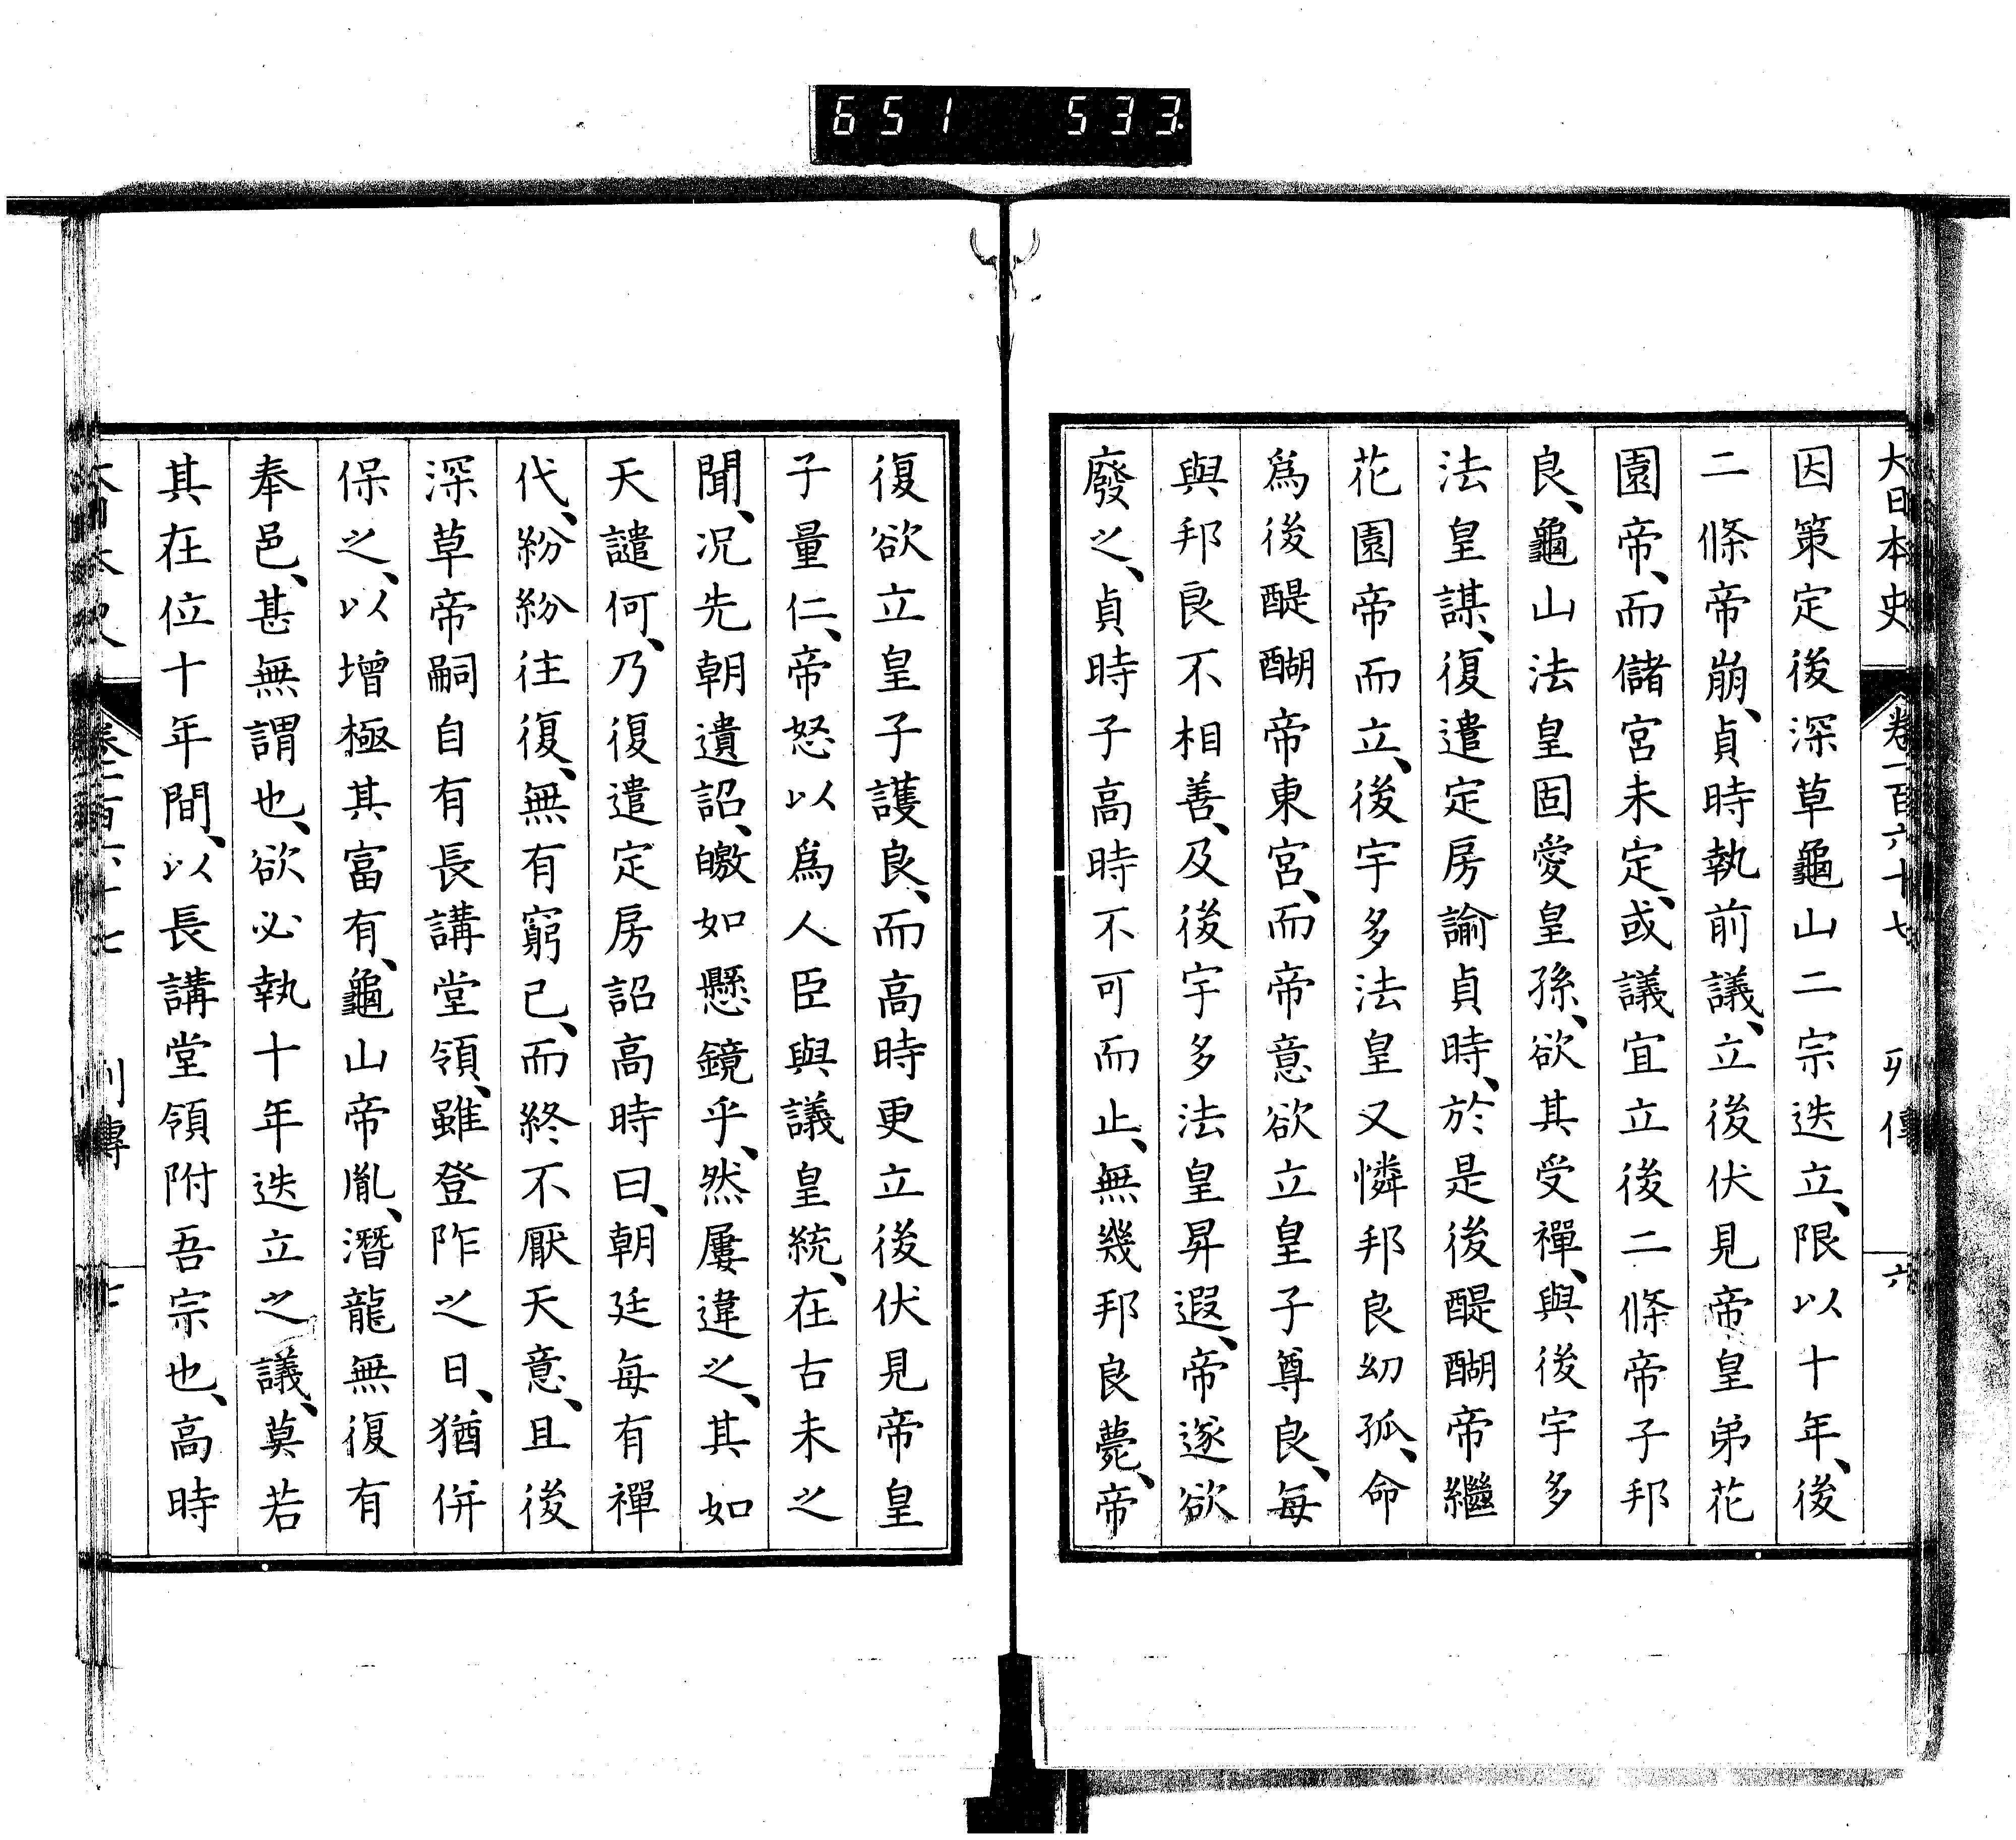 651 533
大日本史 卷一百六十七 列傳 六
因策定後深草龜山二宗迭立、限以十年、後
二條帝崩、貞時執前議、立後伏見帝皇弟花
園帝、而儲宮未定、或議宜立後二條帝子邦
良、龜山法皇固愛皇孫、欲其受禪、與後宇多
法皇謀、復遣定房諭貞時、於是後醍醐帝繼
花園帝而立、後宇多法皇又憐邦良幼孤、命
爲後醍醐帝東宮、而帝意欲立皇子尊良、每
與邦良不相善、及後宇多法皇昇遐、帝遂欲
廢之、貞時子高時不可而止、無幾邦良薨、帝
復欲立皇子護良、而高時更立後伏見帝皇
子量仁、帝怒以爲人臣與議皇統、在古未之
聞、況先朝遺詔、皦如懸鏡乎、然屢違之、其如
天譴何、乃復遣定房詔高時曰、朝廷每有禪
代、紛紛往復、無有窮已、而終不厭天意、且後
深草帝嗣自有長講堂領、雖登阼之日、猶併
保之、以增極其富有、龜山帝胤、潛龍無復有
奉邑、甚無謂也、欲必執十年迭立之議、莫若
其在位十年間、以長講堂領附吾宗也、高時
卷一百六十七 列傳 七